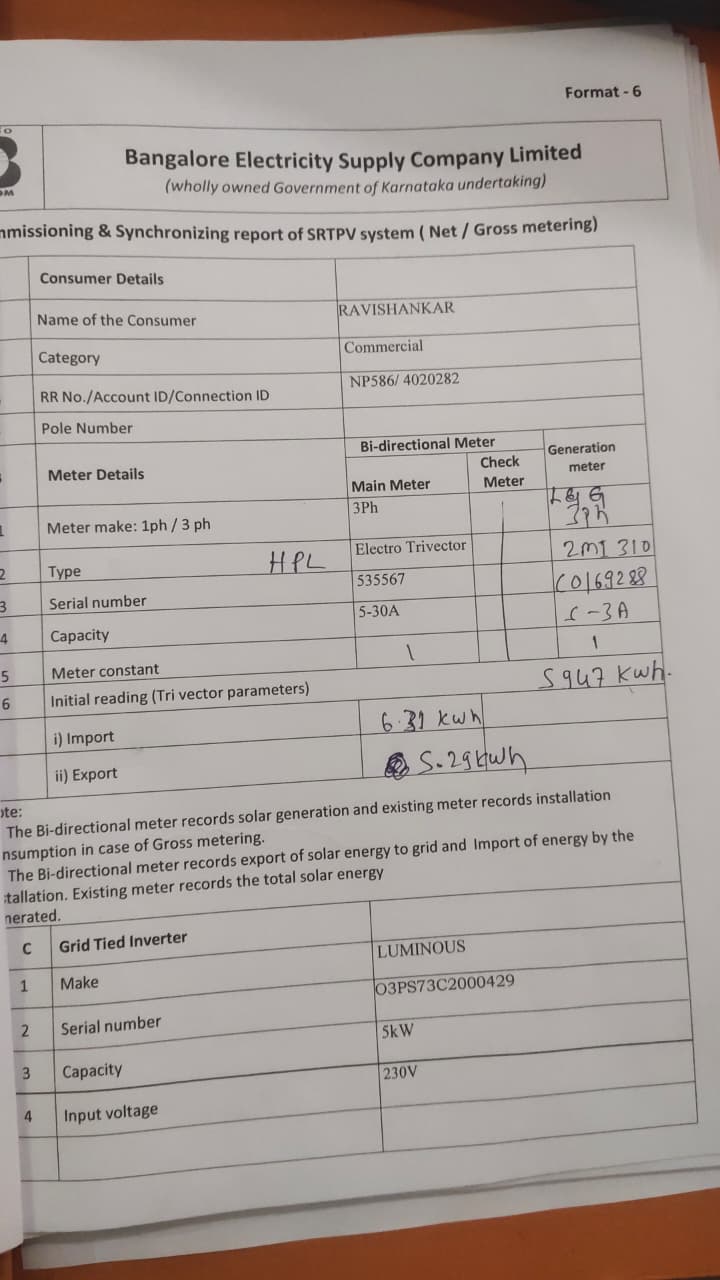 Format - 6
Bangalore Electricity Supply Company Limited
(wholly owned Government of Karnataka undertaking)
mmissioning & Synchronizing report of SRTPV system ( Net / Gross metering)
Consumer Details
Name of the Consumer RAVISHANKAR
Category Commercial
RR No./Account ID/Connection ID NP586/ 4020282
Pole Number
Meter Details Bi-directional Meter Generation meter
Main Meter Check Meter
1 Meter make: 1ph / 3 ph 3Ph L&G 3Ph
2 Type HPL Electro Trivector 2MI 310
3 Serial number 535567 C0169288
4 Capacity 5-30A 5-3A
5 Meter constant 1 1
6 Initial reading (Tri vector parameters) 5947 kwh.
i) Import 6.31 kwh
ii) Export 5.29 kwh
ote:
The Bi-directional meter records solar generation and existing meter records installation
nsumption in case of Gross metering.
The Bi-directional meter records export of solar energy to grid and Import of energy by the
stallation. Existing meter records the total solar energy
nerated.
C Grid Tied Inverter
1 Make LUMINOUS
2 Serial number O3PS73C2000429
3 Capacity 5kW
4 Input voltage 230V